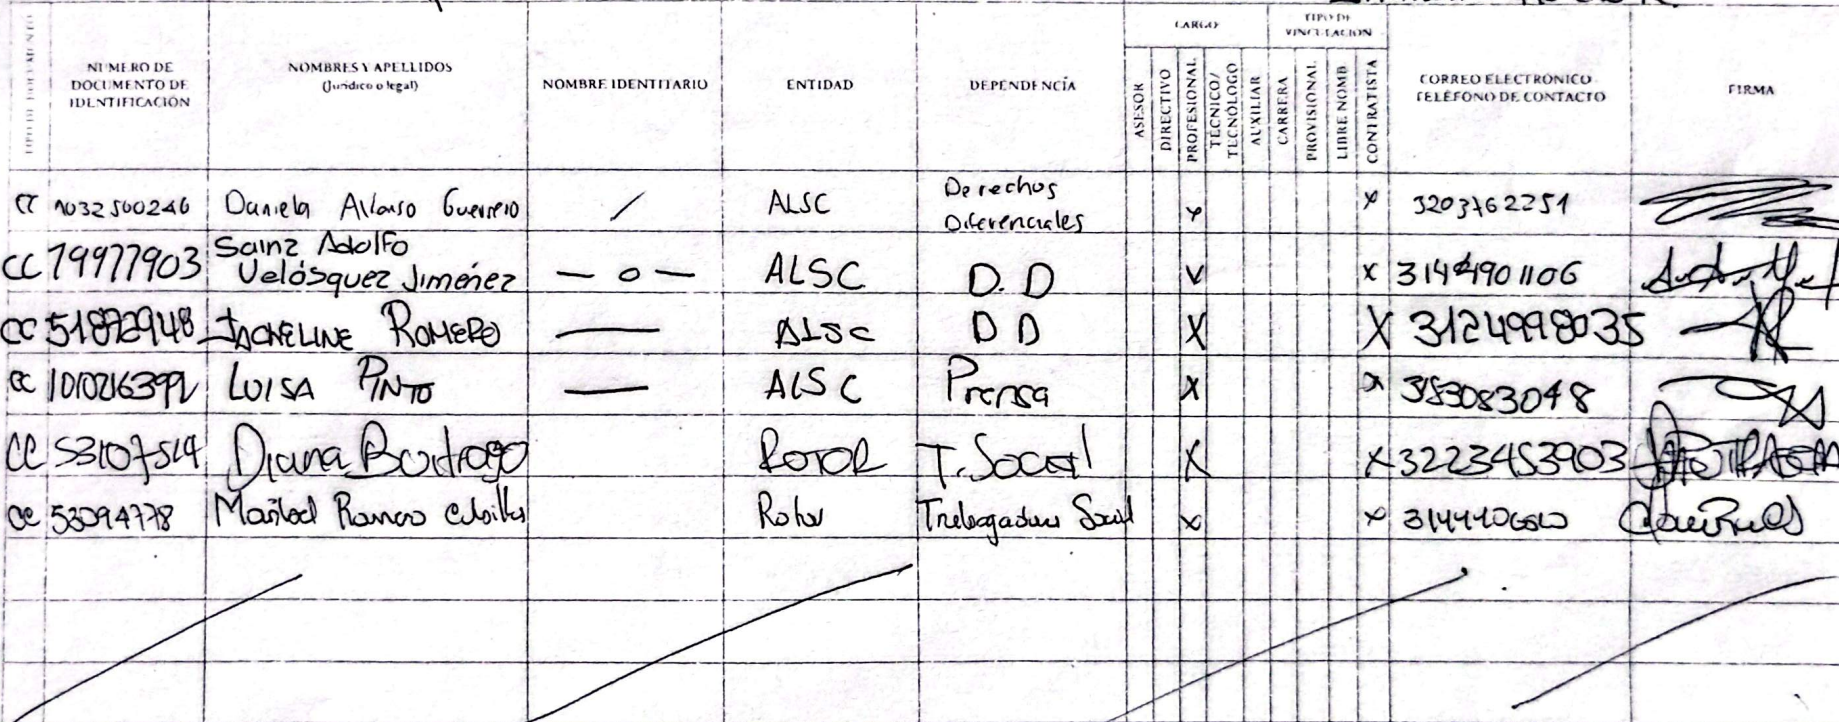 CARGO
TIPO DE VINCULACIÓN
TIPO DE DOCUMENTO
NUMERO DE DOCUMENTO DE IDENTIFICACIÓN
NOMBRES Y APELLIDOS (Jurídico o legal)
NOMBRE IDENTITARIO
ENTIDAD
DEPENDENCÍA
ASESOR
DIRECTIVO
PROFESIONAL
TECNICO/ TECNOLOGO
AUXILIAR
CARRERA
PROVISIONAL
LIBRE NOMB
CONTRATISTA
CORREO ELECTRÓNICO TELÉFONO DE CONTACTO
FIRMA
CC 1032500246 Daniela Alfonso Guerrero / ALSC Derechos Diferenciales x x 3203762251
CC 79977903 Sainz Adolfo Velásquez Jiménez — o — ALSC D.D x x 3144901106
CC 51872948 JACKELINE ROMERO — ALSC D D X X 3124998035
CC LUISA PINTO — ALSC Prensa X x
CC 53107514 Diana Buitrago ROTOR T. Social X X 3223453903
CC 53094778 Maribel Romero Rotor Trabajadora Social x x